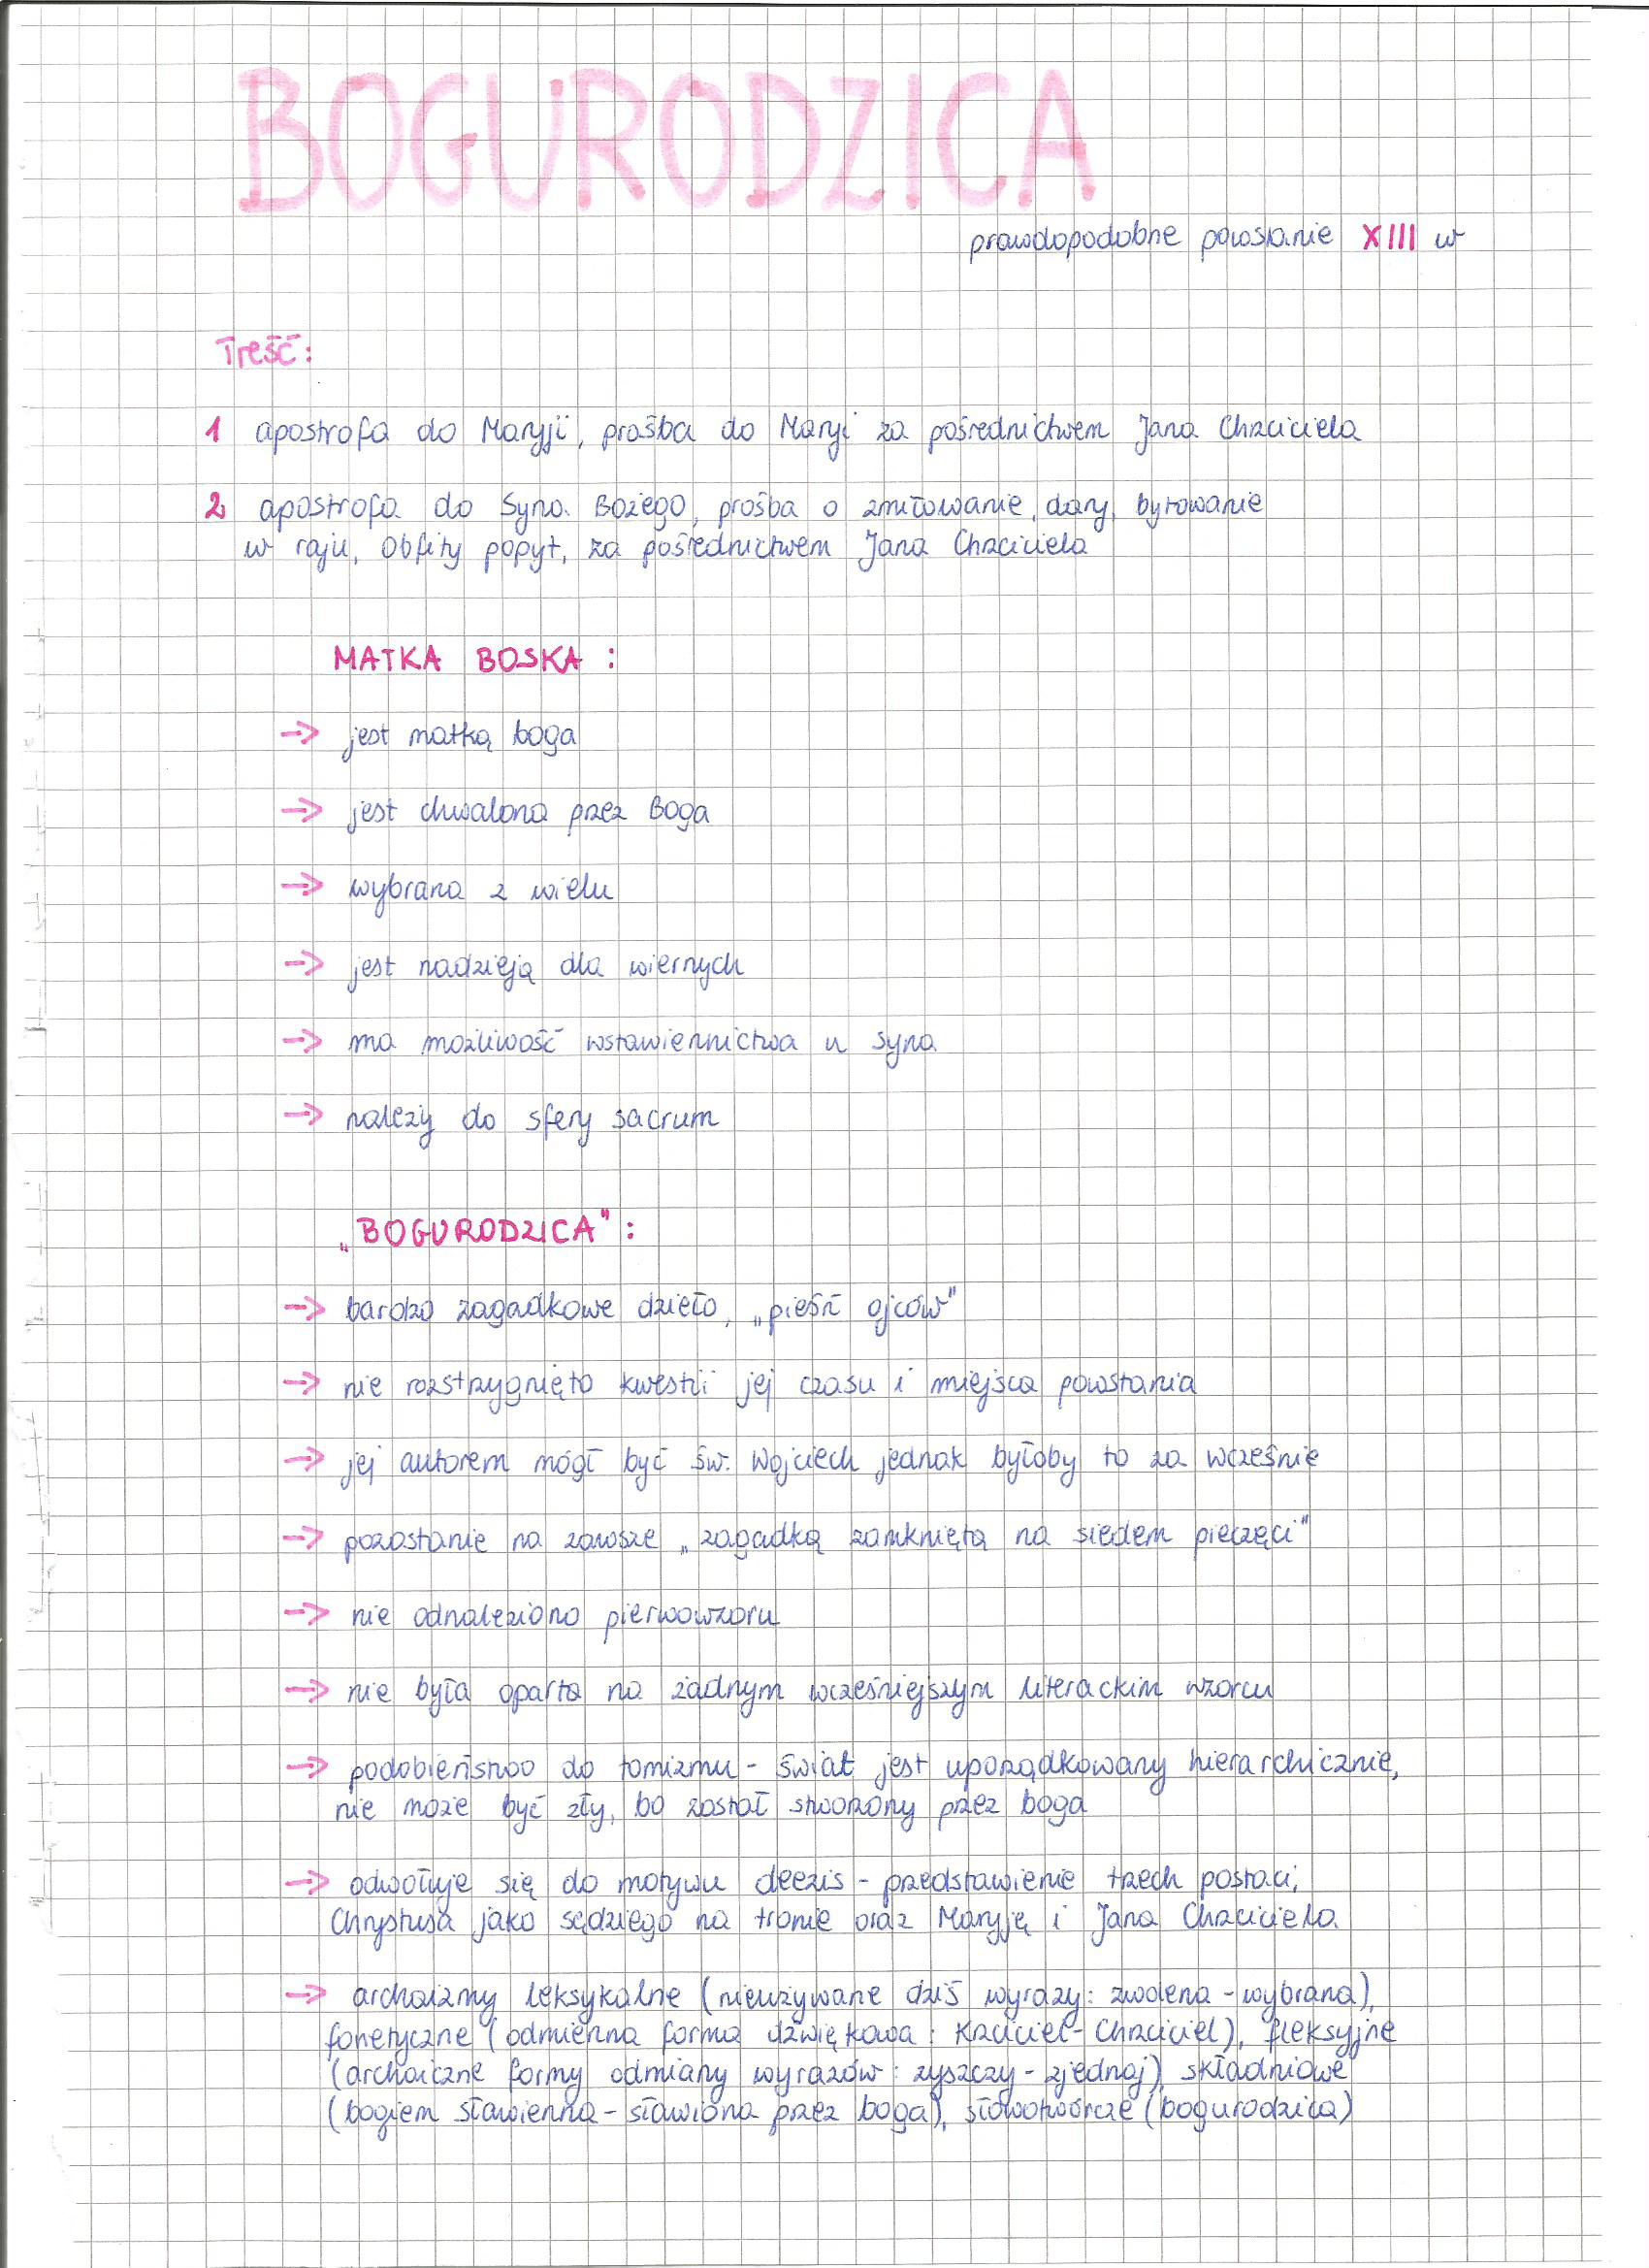 BOGURODZICA
prawdopodobne powstanie XIII w
Treść:
1 apostrofa do Maryji, prośba do Maryi za pośrednictwem Jana Chrzciciela
2 apostrofa do Syna Bożego, prośba o zmiłowanie, dary, bytowanie
w raju, obfity popyt, za pośrednictwem Jana Chrzciciela
MATKA BOSKA :
-> jest matką boga
-> jest chwalona przez Boga
-> wybrana z wielu
-> jest nadzieją dla wiernych
-> ma możliwość wstawiennictwa u Syna
-> należy do sfery sacrum
„BOGURODZICA" :
-> bardzo zagadkowe dzieło, „pieśń ojców"
-> nie rozstrzygnięto kwestii jej czasu i miejsca powstania
-> jej autorem mógł być św. Wojciech jednak byłoby to za wcześnie
-> pozostanie na zawsze „zagadką zamkniętą na siedem pieczęci"
-> nie odnaleziono pierwowzoru
-> nie była oparta na żadnym wcześniejszym literackim wzorcu
-> podobieństwo do tomizmu - świat jest uporządkowany hierarchicznie,
nie może być zły, bo został stworzony przez boga
-> odwołuje się do motywu deezis - przedstawienie trzech postaci,
Chrystusa jako sędziego na tronie oraz Maryję i Jana Chrzciciela
-> archaizmy leksykalne (nieużywane dziś wyrazy: zwolena - wybrana),
fonetyczne (odmienna forma dźwiękowa : Krzciciel - Chrzciciel), fleksyjne
(archaiczne formy odmiany wyrazów : zyszczy - zjednaj), składniowe
(bogiem sławienna - sławiona przez boga), słowotwórcze (bogurodzica)